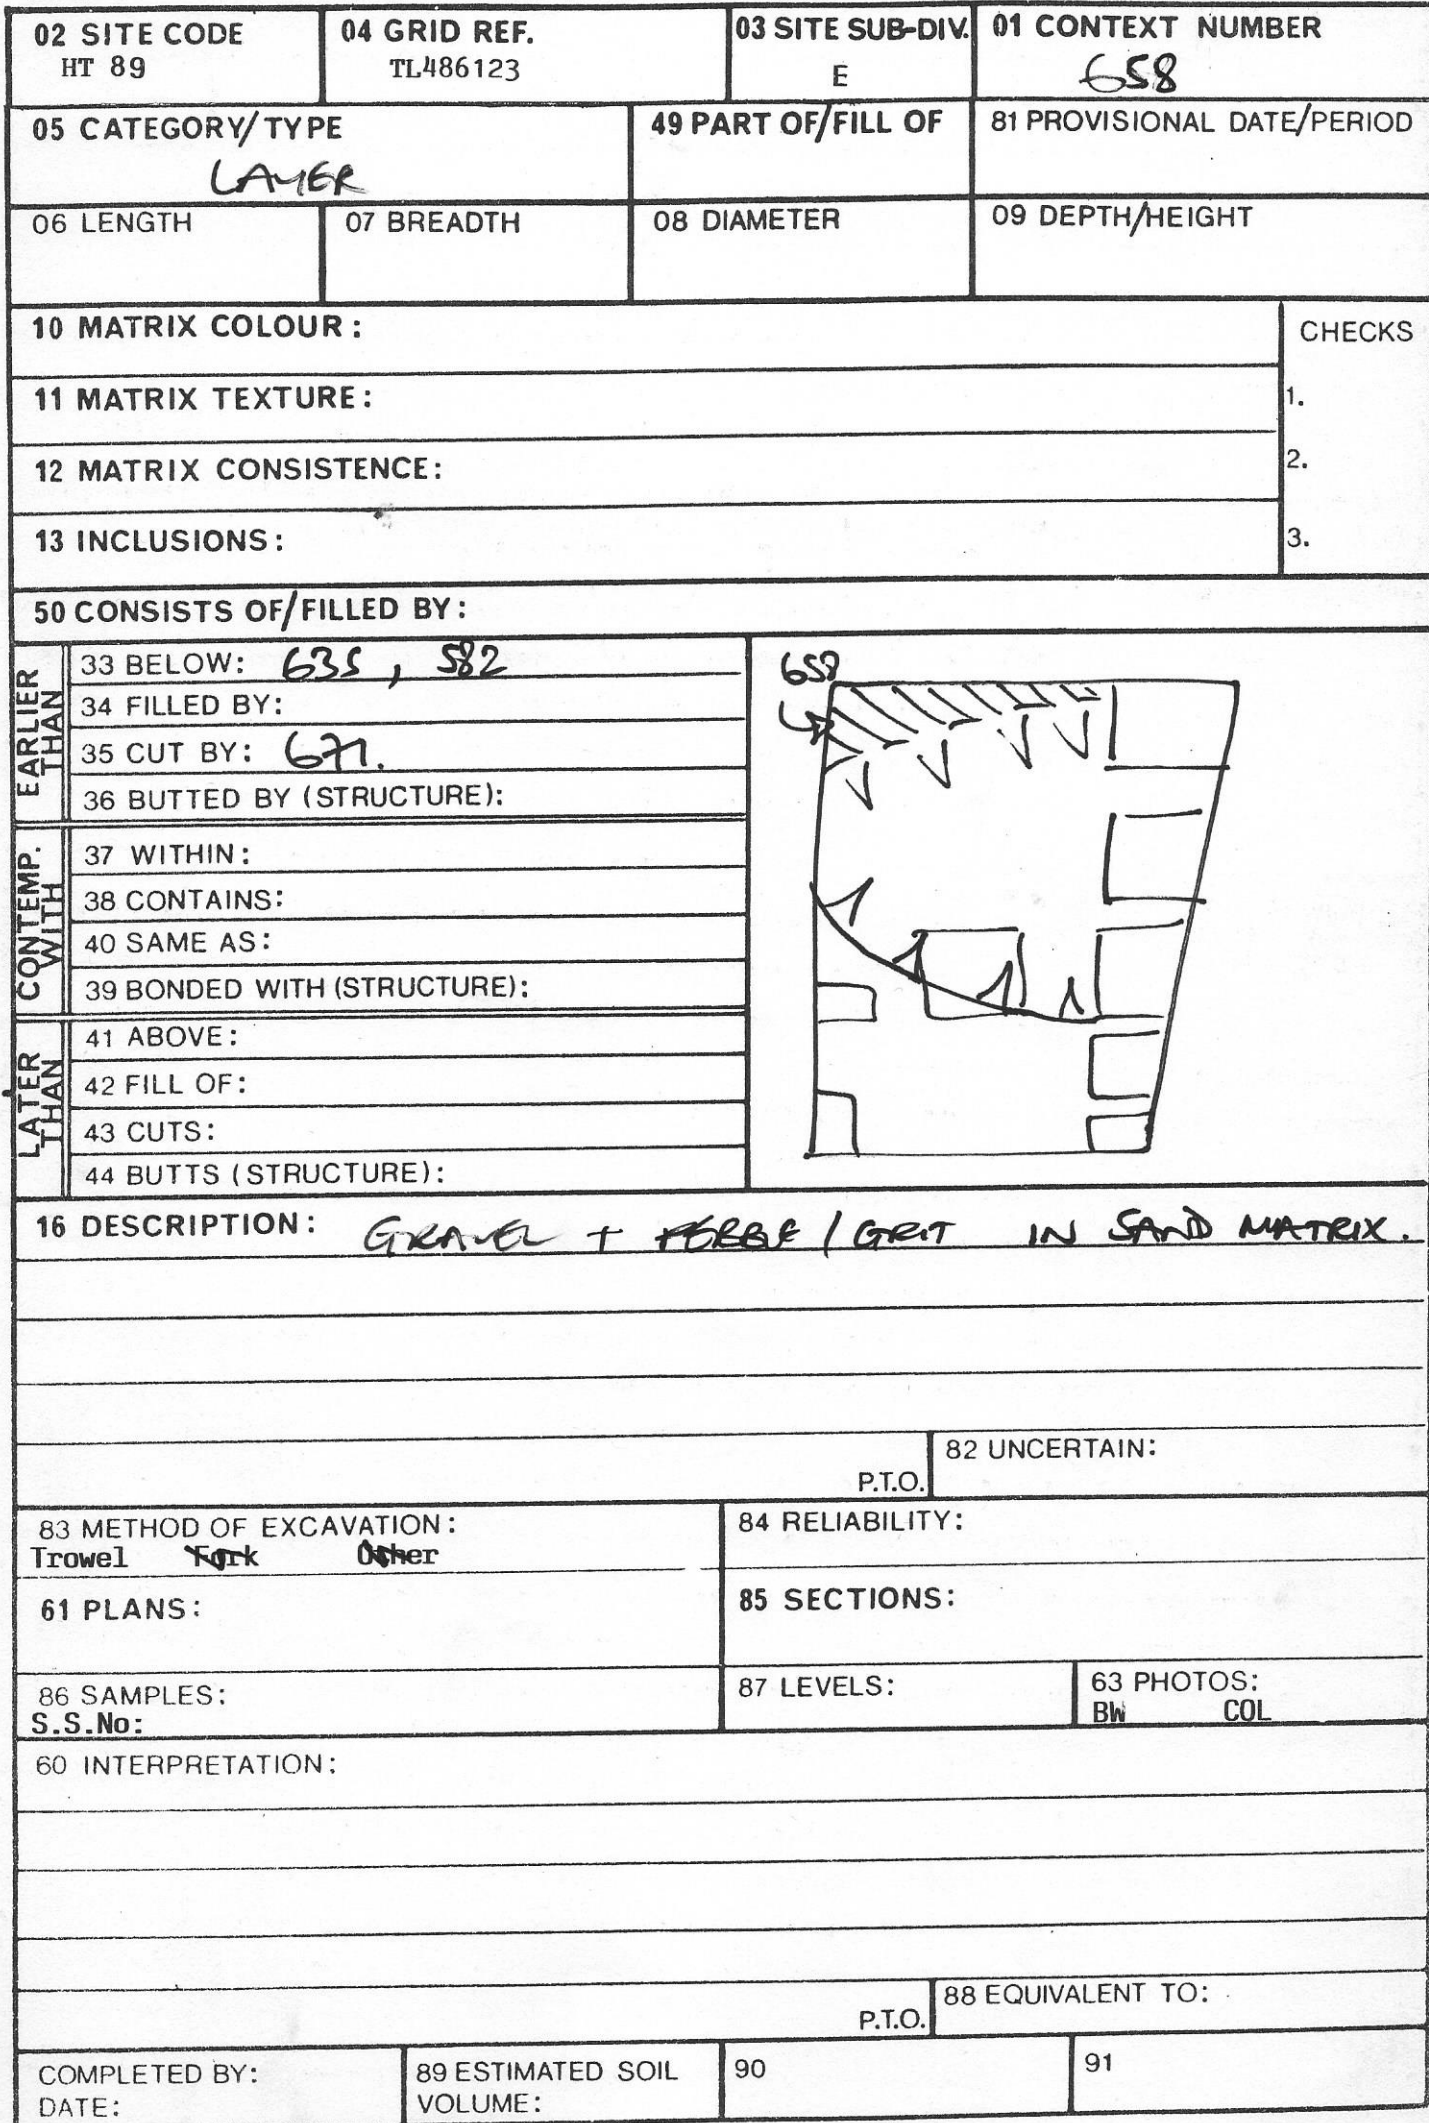 02 SITE CODE
HT 89
04 GRID REF.
TL486123
03 SITE SUB-DIV.
E
01 CONTEXT NUMBER
658
05 CATEGORY/TYPE
LAYER
49 PART OF/FILL OF
81 PROVISIONAL DATE/PERIOD
06 LENGTH
07 BREADTH
08 DIAMETER
09 DEPTH/HEIGHT
10 MATRIX COLOUR:
CHECKS
11 MATRIX TEXTURE:
1.
12 MATRIX CONSISTENCE:
2.
13 INCLUSIONS:
3.
50 CONSISTS OF/FILLED BY:
EARLIER
THAN
33 BELOW: 635, 582
34 FILLED BY:
35 CUT BY: 671.
36 BUTTED BY (STRUCTURE):
CONTEMP.
WITH
37 WITHIN:
38 CONTAINS:
40 SAME AS:
39 BONDED WITH (STRUCTURE):
LATER
THAN
41 ABOVE:
42 FILL OF:
43 CUTS:
44 BUTTS (STRUCTURE):
658
16 DESCRIPTION: GRAVEL + PEBBLE / GRIT IN SAND MATRIX.
P.T.O.
82 UNCERTAIN:
83 METHOD OF EXCAVATION:
Trowel Fork Other
84 RELIABILITY:
61 PLANS:
85 SECTIONS:
86 SAMPLES:
S.S.No:
87 LEVELS:
63 PHOTOS:
BW COL
60 INTERPRETATION:
P.T.O.
88 EQUIVALENT TO:
COMPLETED BY:
DATE:
89 ESTIMATED SOIL
VOLUME:
90
91